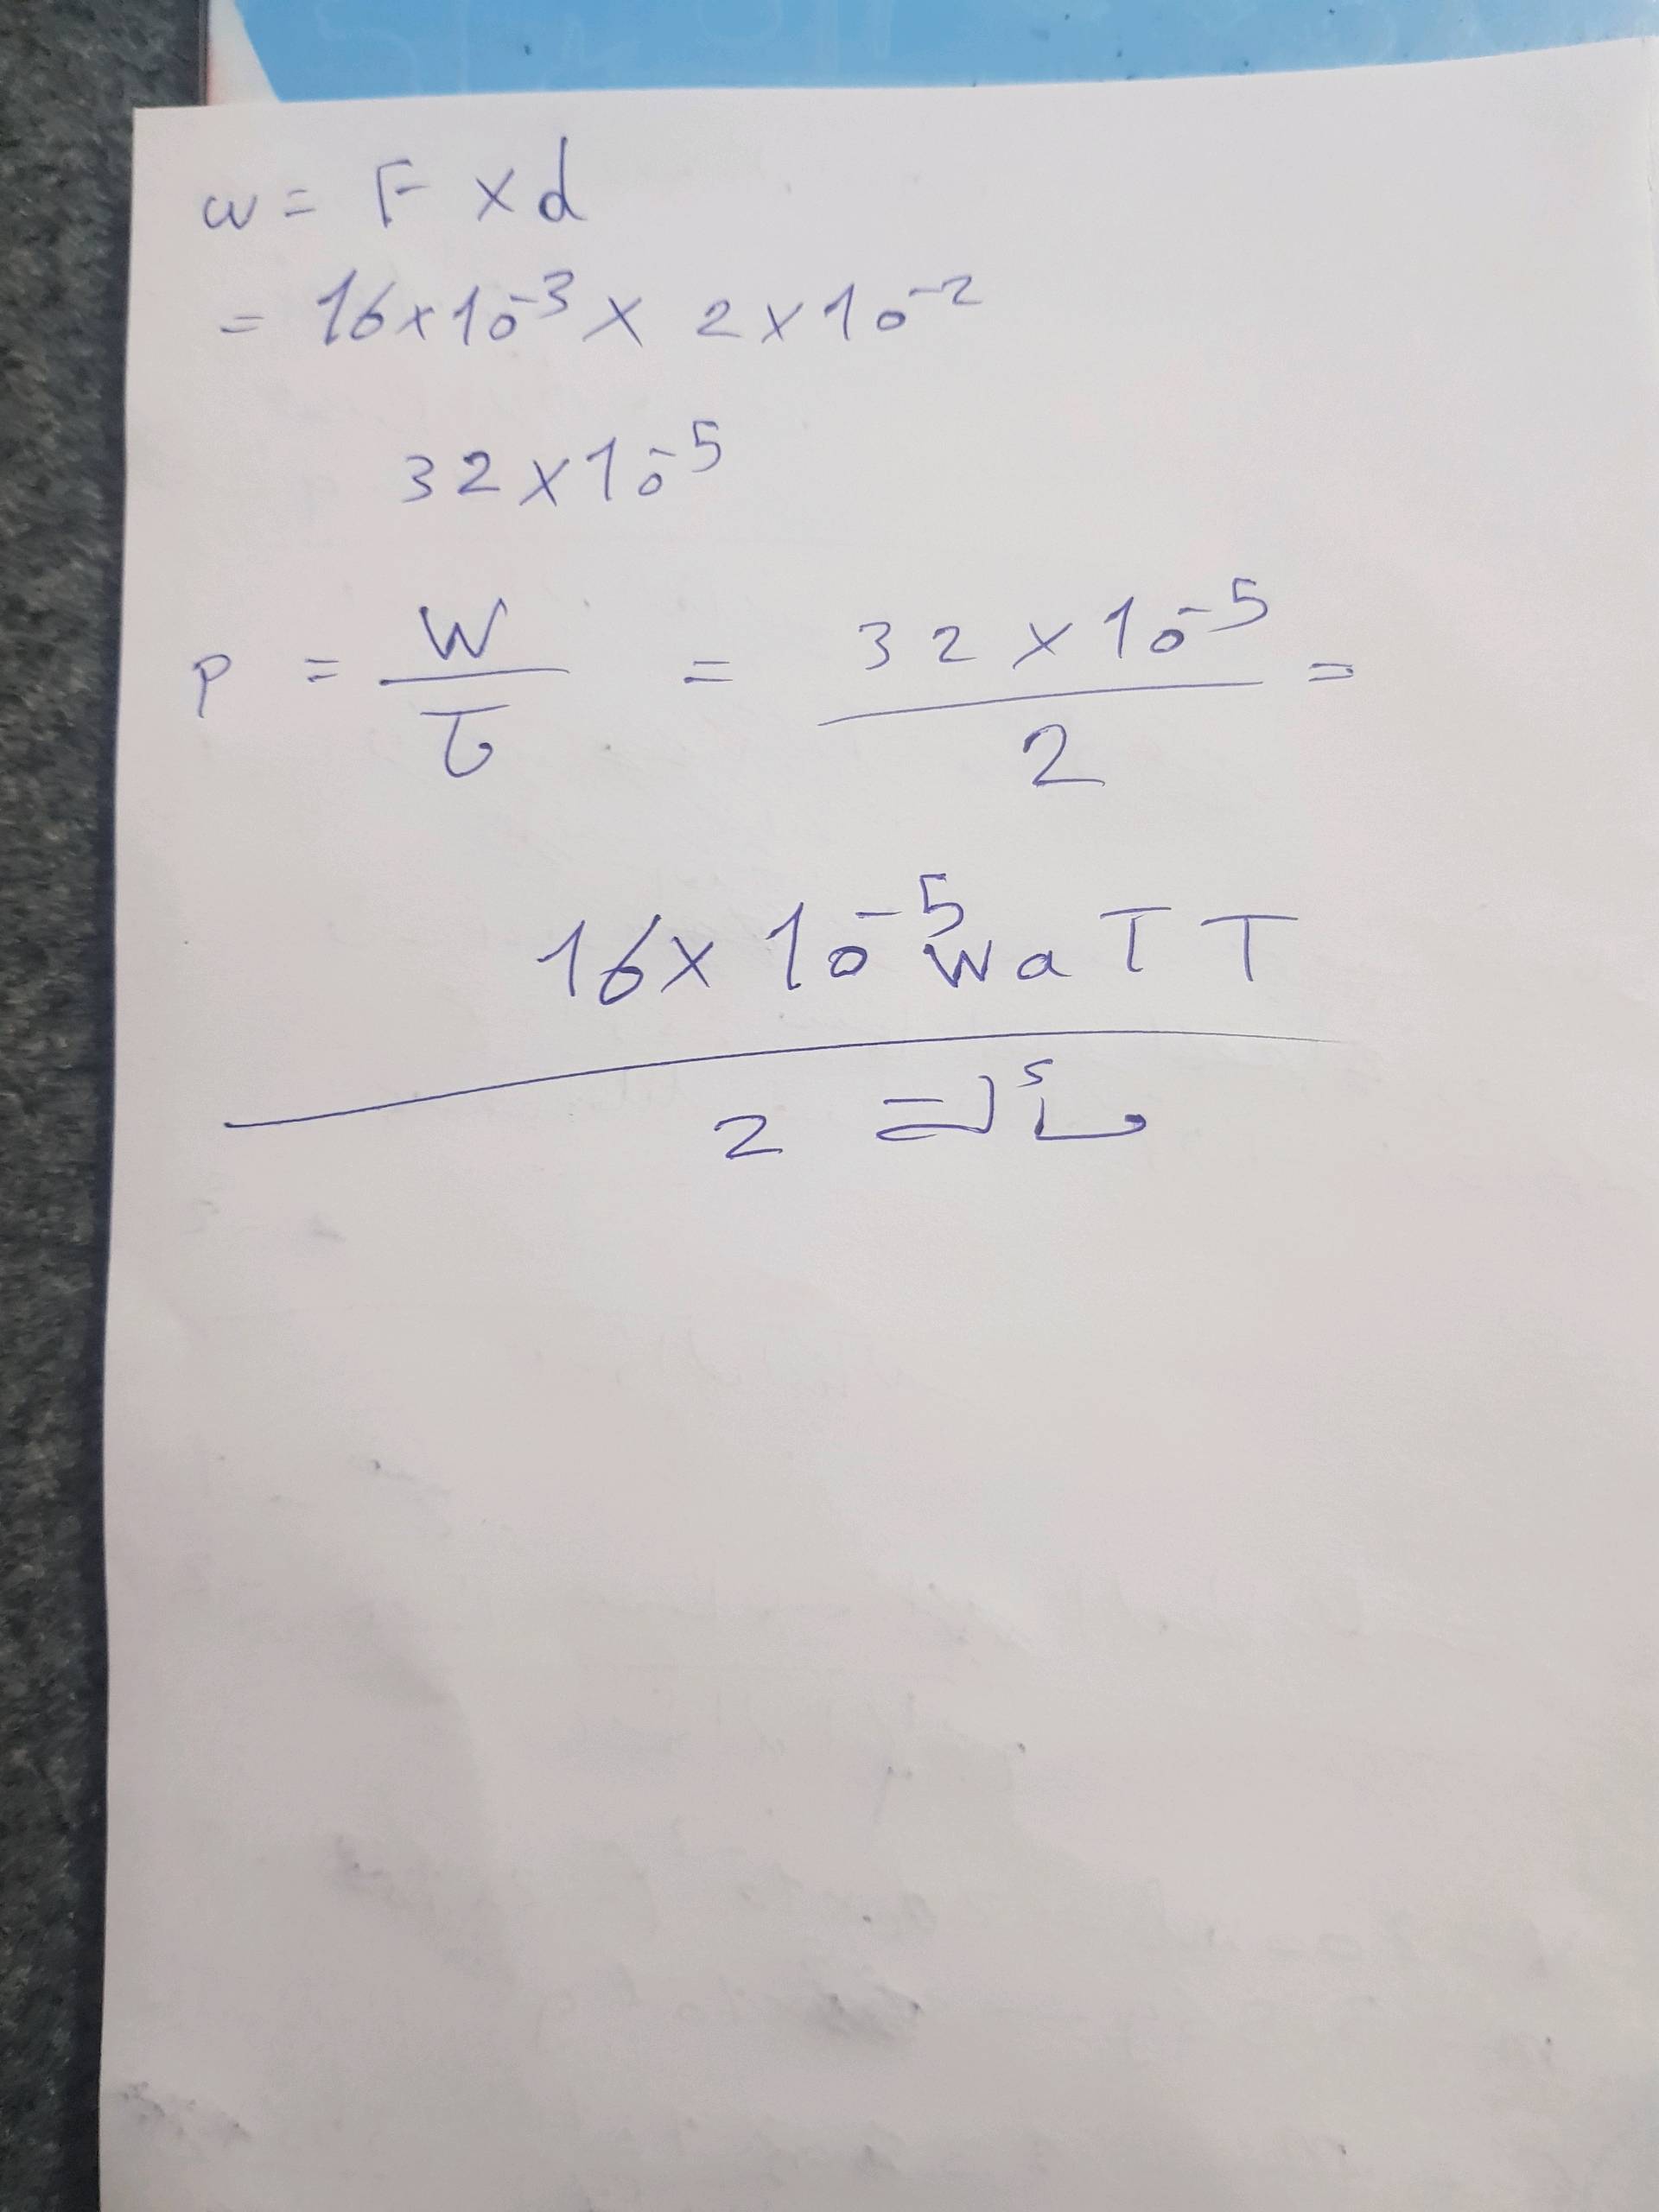 w = F × d
= 16×10⁻³ × 2×10⁻²
32×10⁻⁵
P = W/τ = 32×10⁻⁵/2 =
16×10⁻⁵ WaTT
2